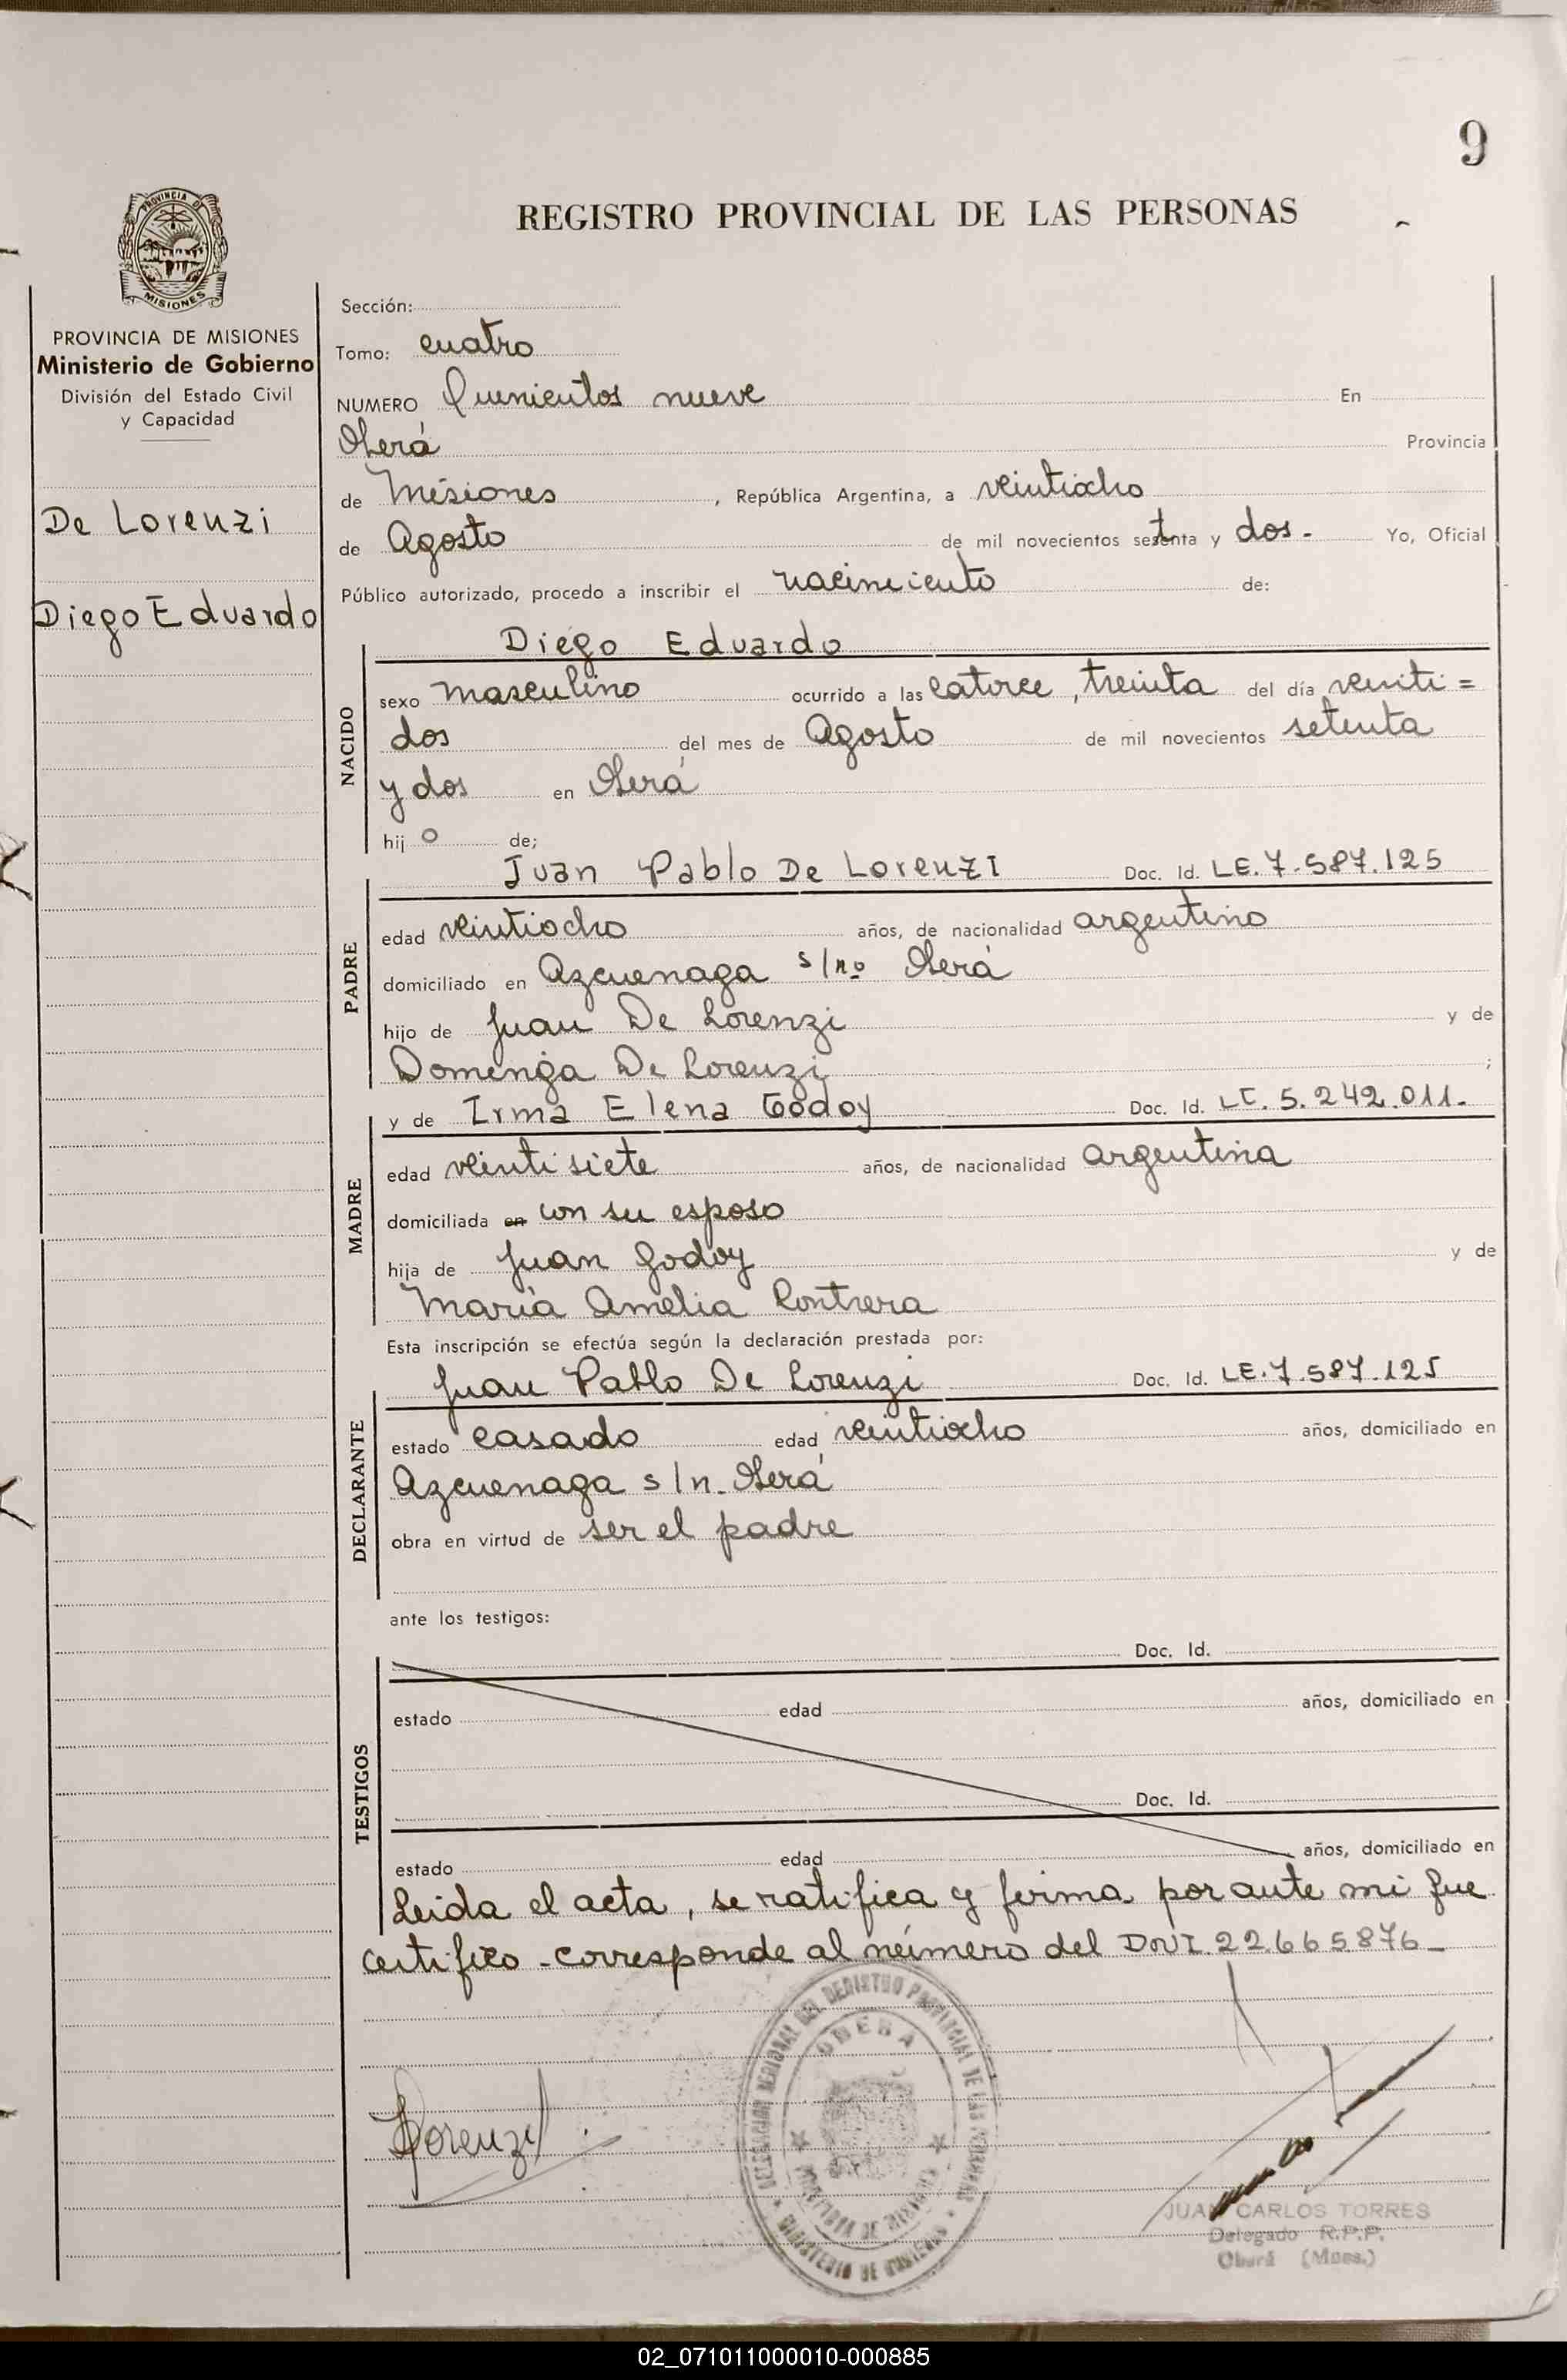 9
REGISTRO PROVINCIAL DE LAS PERSONAS
PROVINCIA DE
MISIONES
PROVINCIA DE MISIONES
Ministerio de Gobierno
División del Estado Civil
y Capacidad
De Lorenzi
Diego Eduardo
Sección:
Tomo: cuatro
NUMERO Quinientos nueve En
Oberá Provincia
de Misiones, República Argentina, a veintiocho
de Agosto de mil novecientos setenta y dos.- Yo, Oficial
Público autorizado, procedo a inscribir el nacimiento de:
NACIDO
Diego Eduardo
sexo masculino ocurrido a las catorce, treinta del día veinti=
dos del mes de Agosto de mil novecientos setenta
y dos en Oberá
hijo de;
PADRE
Juan Pablo De Lorenzi Doc. Id. LE. 7.587.125
edad veintiocho años, de nacionalidad argentino
domiciliado en Azcuenaga s/nº Oberá
hijo de Juan De Lorenzi y de
Domenga De Lorenzi ;
MADRE
y de Irma Elena Godoy Doc. Id. LC. 5.242.011.-
edad veintisiete años, de nacionalidad argentina
domiciliada en con su esposo
hija de Juan Godoy y de
María Amelia Contrera
Esta inscripción se efectúa según la declaración prestada por:
DECLARANTE
Juan Pablo De Lorenzi Doc. Id. LE. 7.587.125
estado casado edad veintiocho años, domiciliado en
Azcuenaga s/n. Oberá
obra en virtud de ser el padre
ante los testigos:
TESTIGOS
Doc. Id.
estado edad años, domiciliado en
Doc. Id.
estado edad años, domiciliado en
Leida el acta, se ratifica y firma por ante mi que
certifico - corresponde al número del DNI. 22.665876_
DELEGACION REGIONAL DEL REGISTRO PROVINCIAL DE LAS PERSONAS
OBERA
PROVINCIA DE MISIONES
MINISTERIO DE GOBIERNO
DLorenzi
JUAN CARLOS TORRES
Delegado R.P.P.
Oberá (Mnes.)
02_071011000010-000885